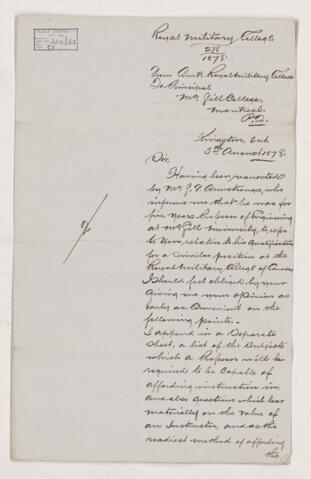 Royal Military College
278
1878
From Comt Royal Military College
To Principal
McGill College,
Montreal
P.Q.
Kingston, Ont
5th August 1878
Sir,
Having been requested
by Mr. J. Armstrong, who
informs me that he was for
five years Professor of Engineering
at McGill University, to refer
to you relative to his qualifications
for a similar position at the
Royal Military College of Canada
I should feel obliged by your
giving me your opinion as
early as convenient on the
following points.
I append in a Separate
Sheet, a list of the Subjects
which a Professor will be
required to be Capable of
affording instruction in
and also questions which bear
materially on the value of
an Instructor, and as the
readiest method of affording
the